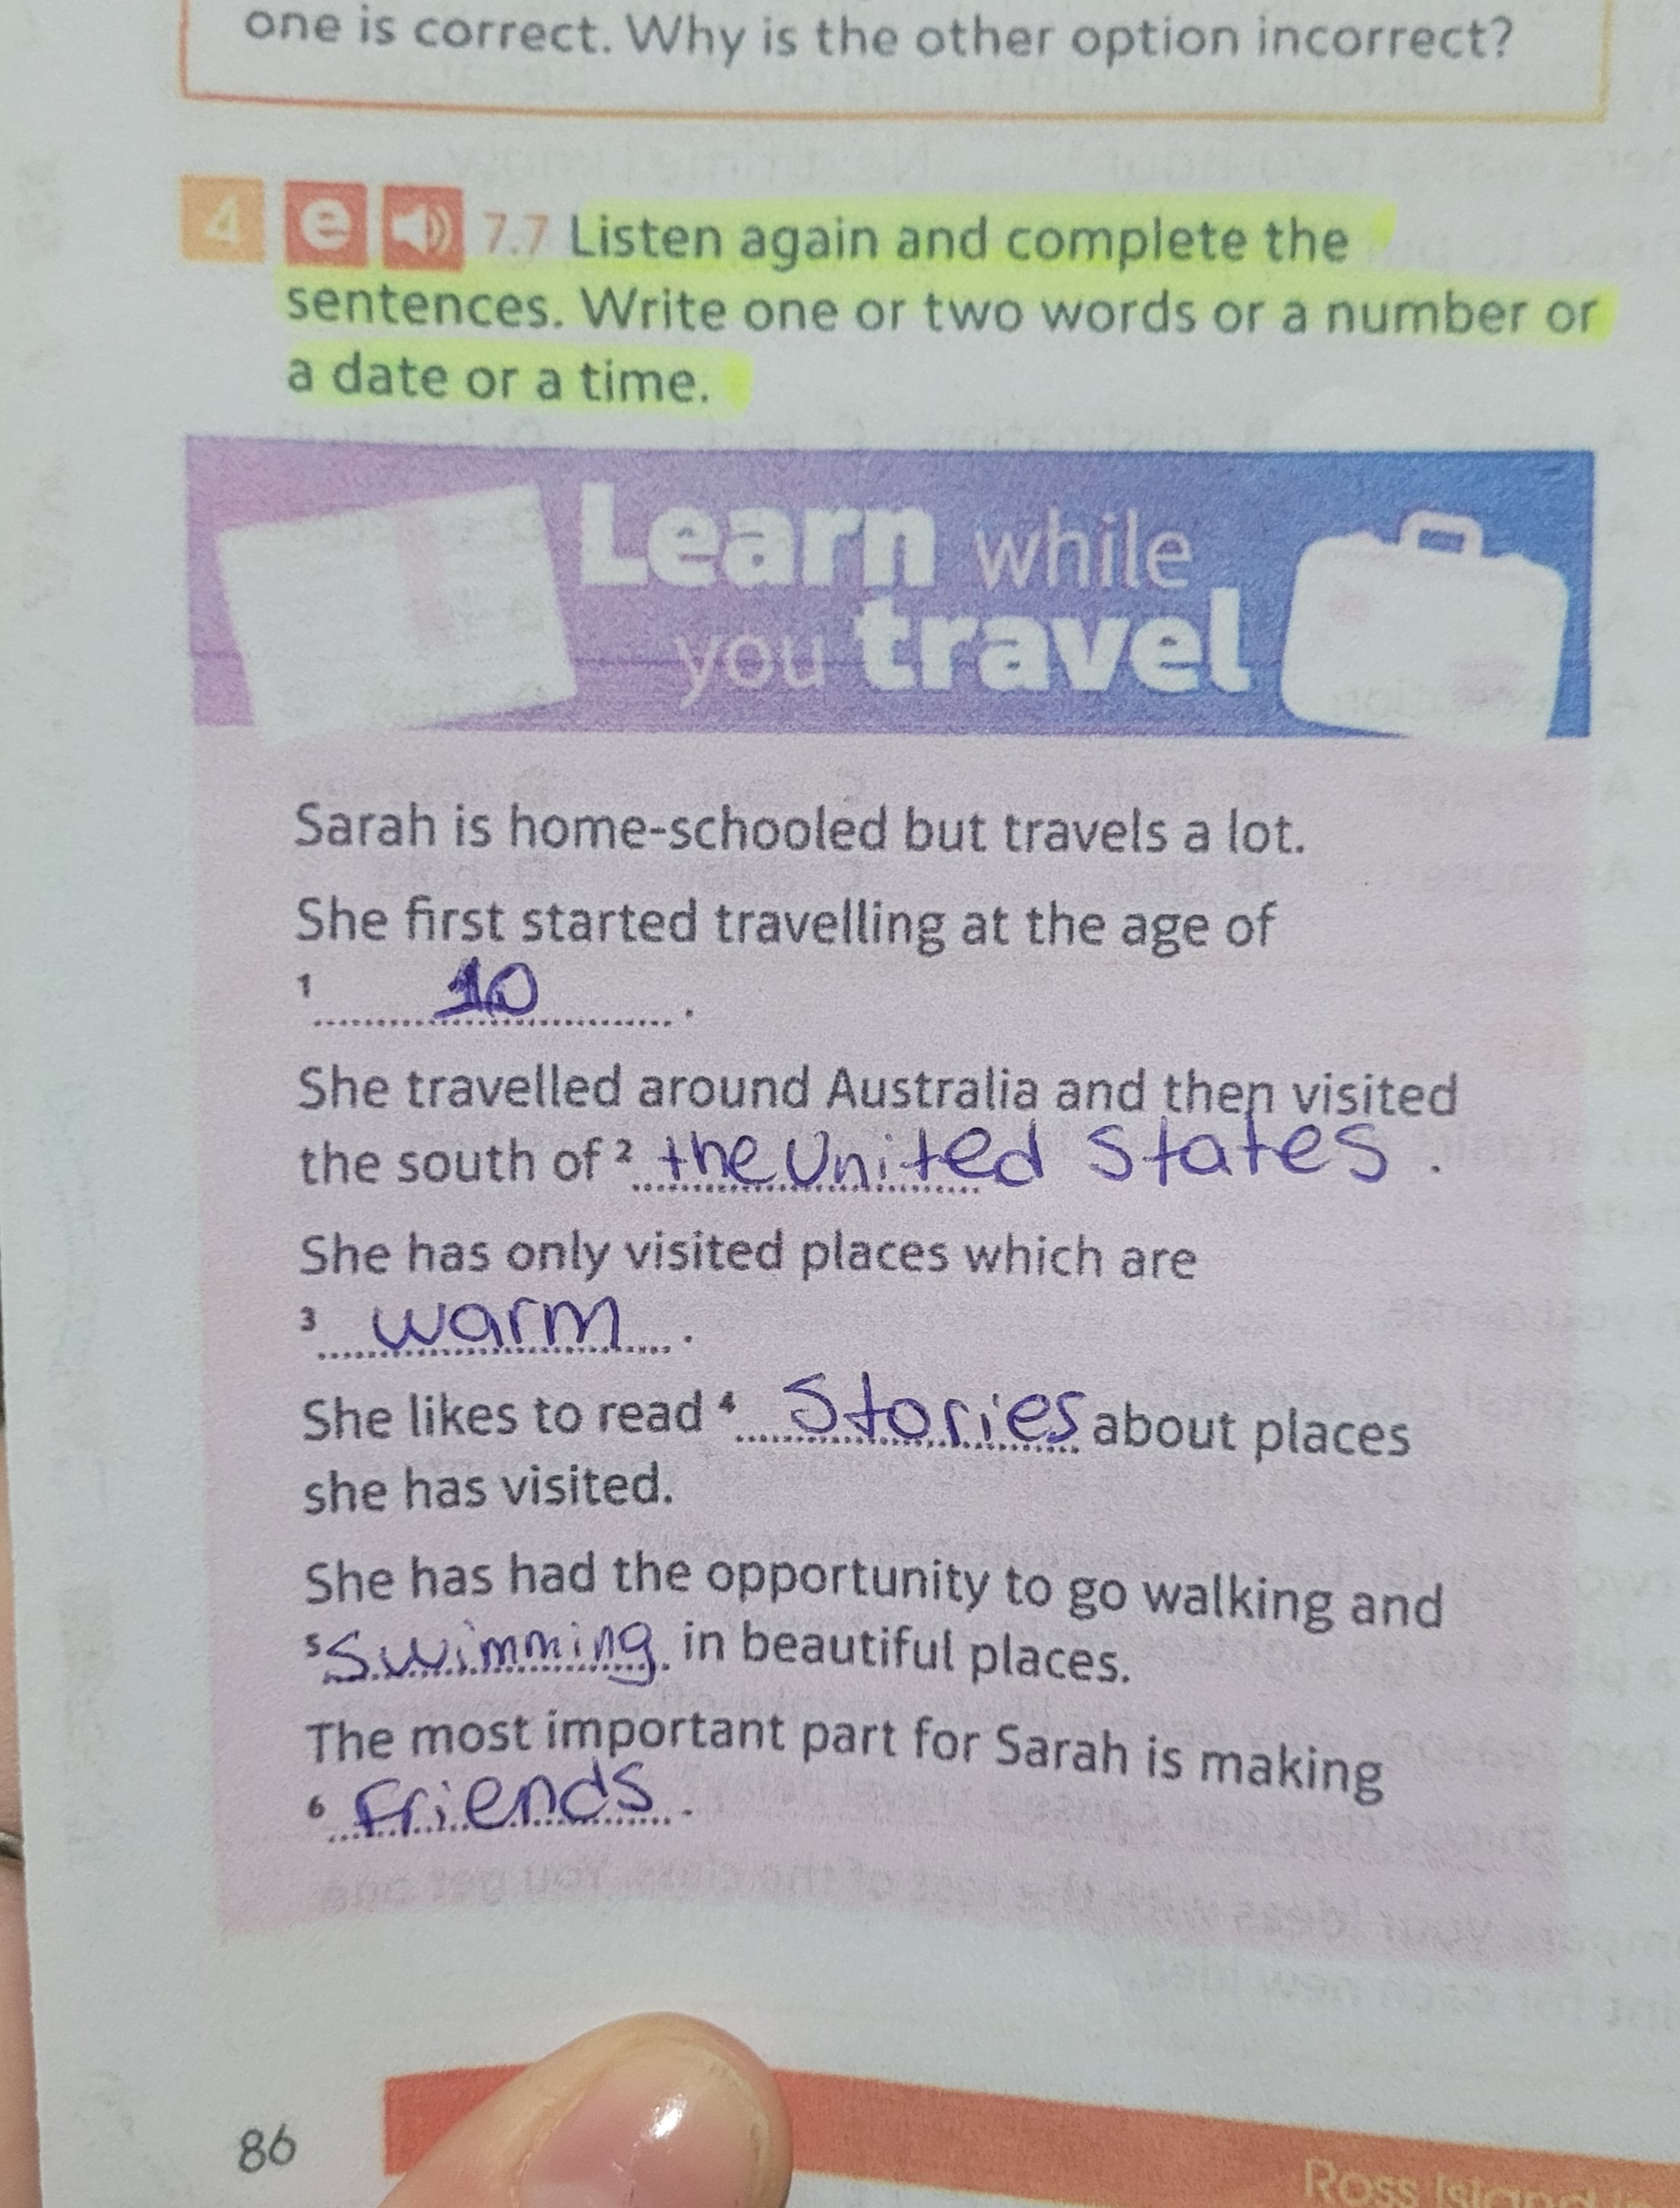 one is correct. Why is the other option incorrect?
4 e 7.7 Listen again and complete the
sentences. Write one or two words or a number or
a date or a time.
Learn while
you travel
Sarah is home-schooled but travels a lot.
She first started travelling at the age of
1 10 .
She travelled around Australia and then visited
the south of 2 the United States .
She has only visited places which are
3 warm .
She likes to read 4 Stories about places
she has visited.
She has had the opportunity to go walking and
5 Swimming in beautiful places.
The most important part for Sarah is making
6 Friends .
86
Ross Island